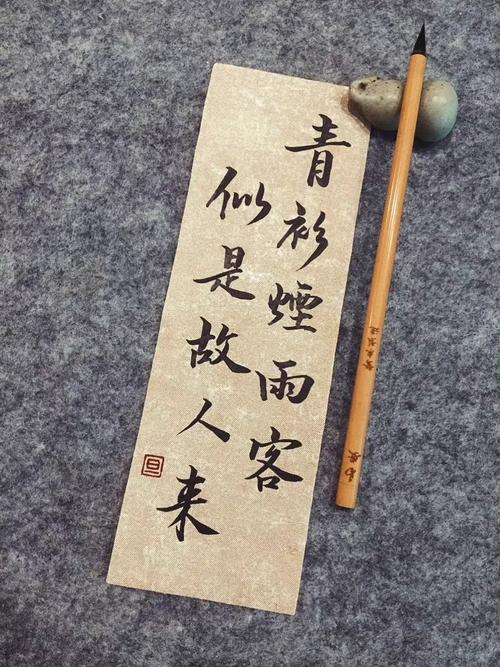 青衫煙雨客
似是故人来
旦